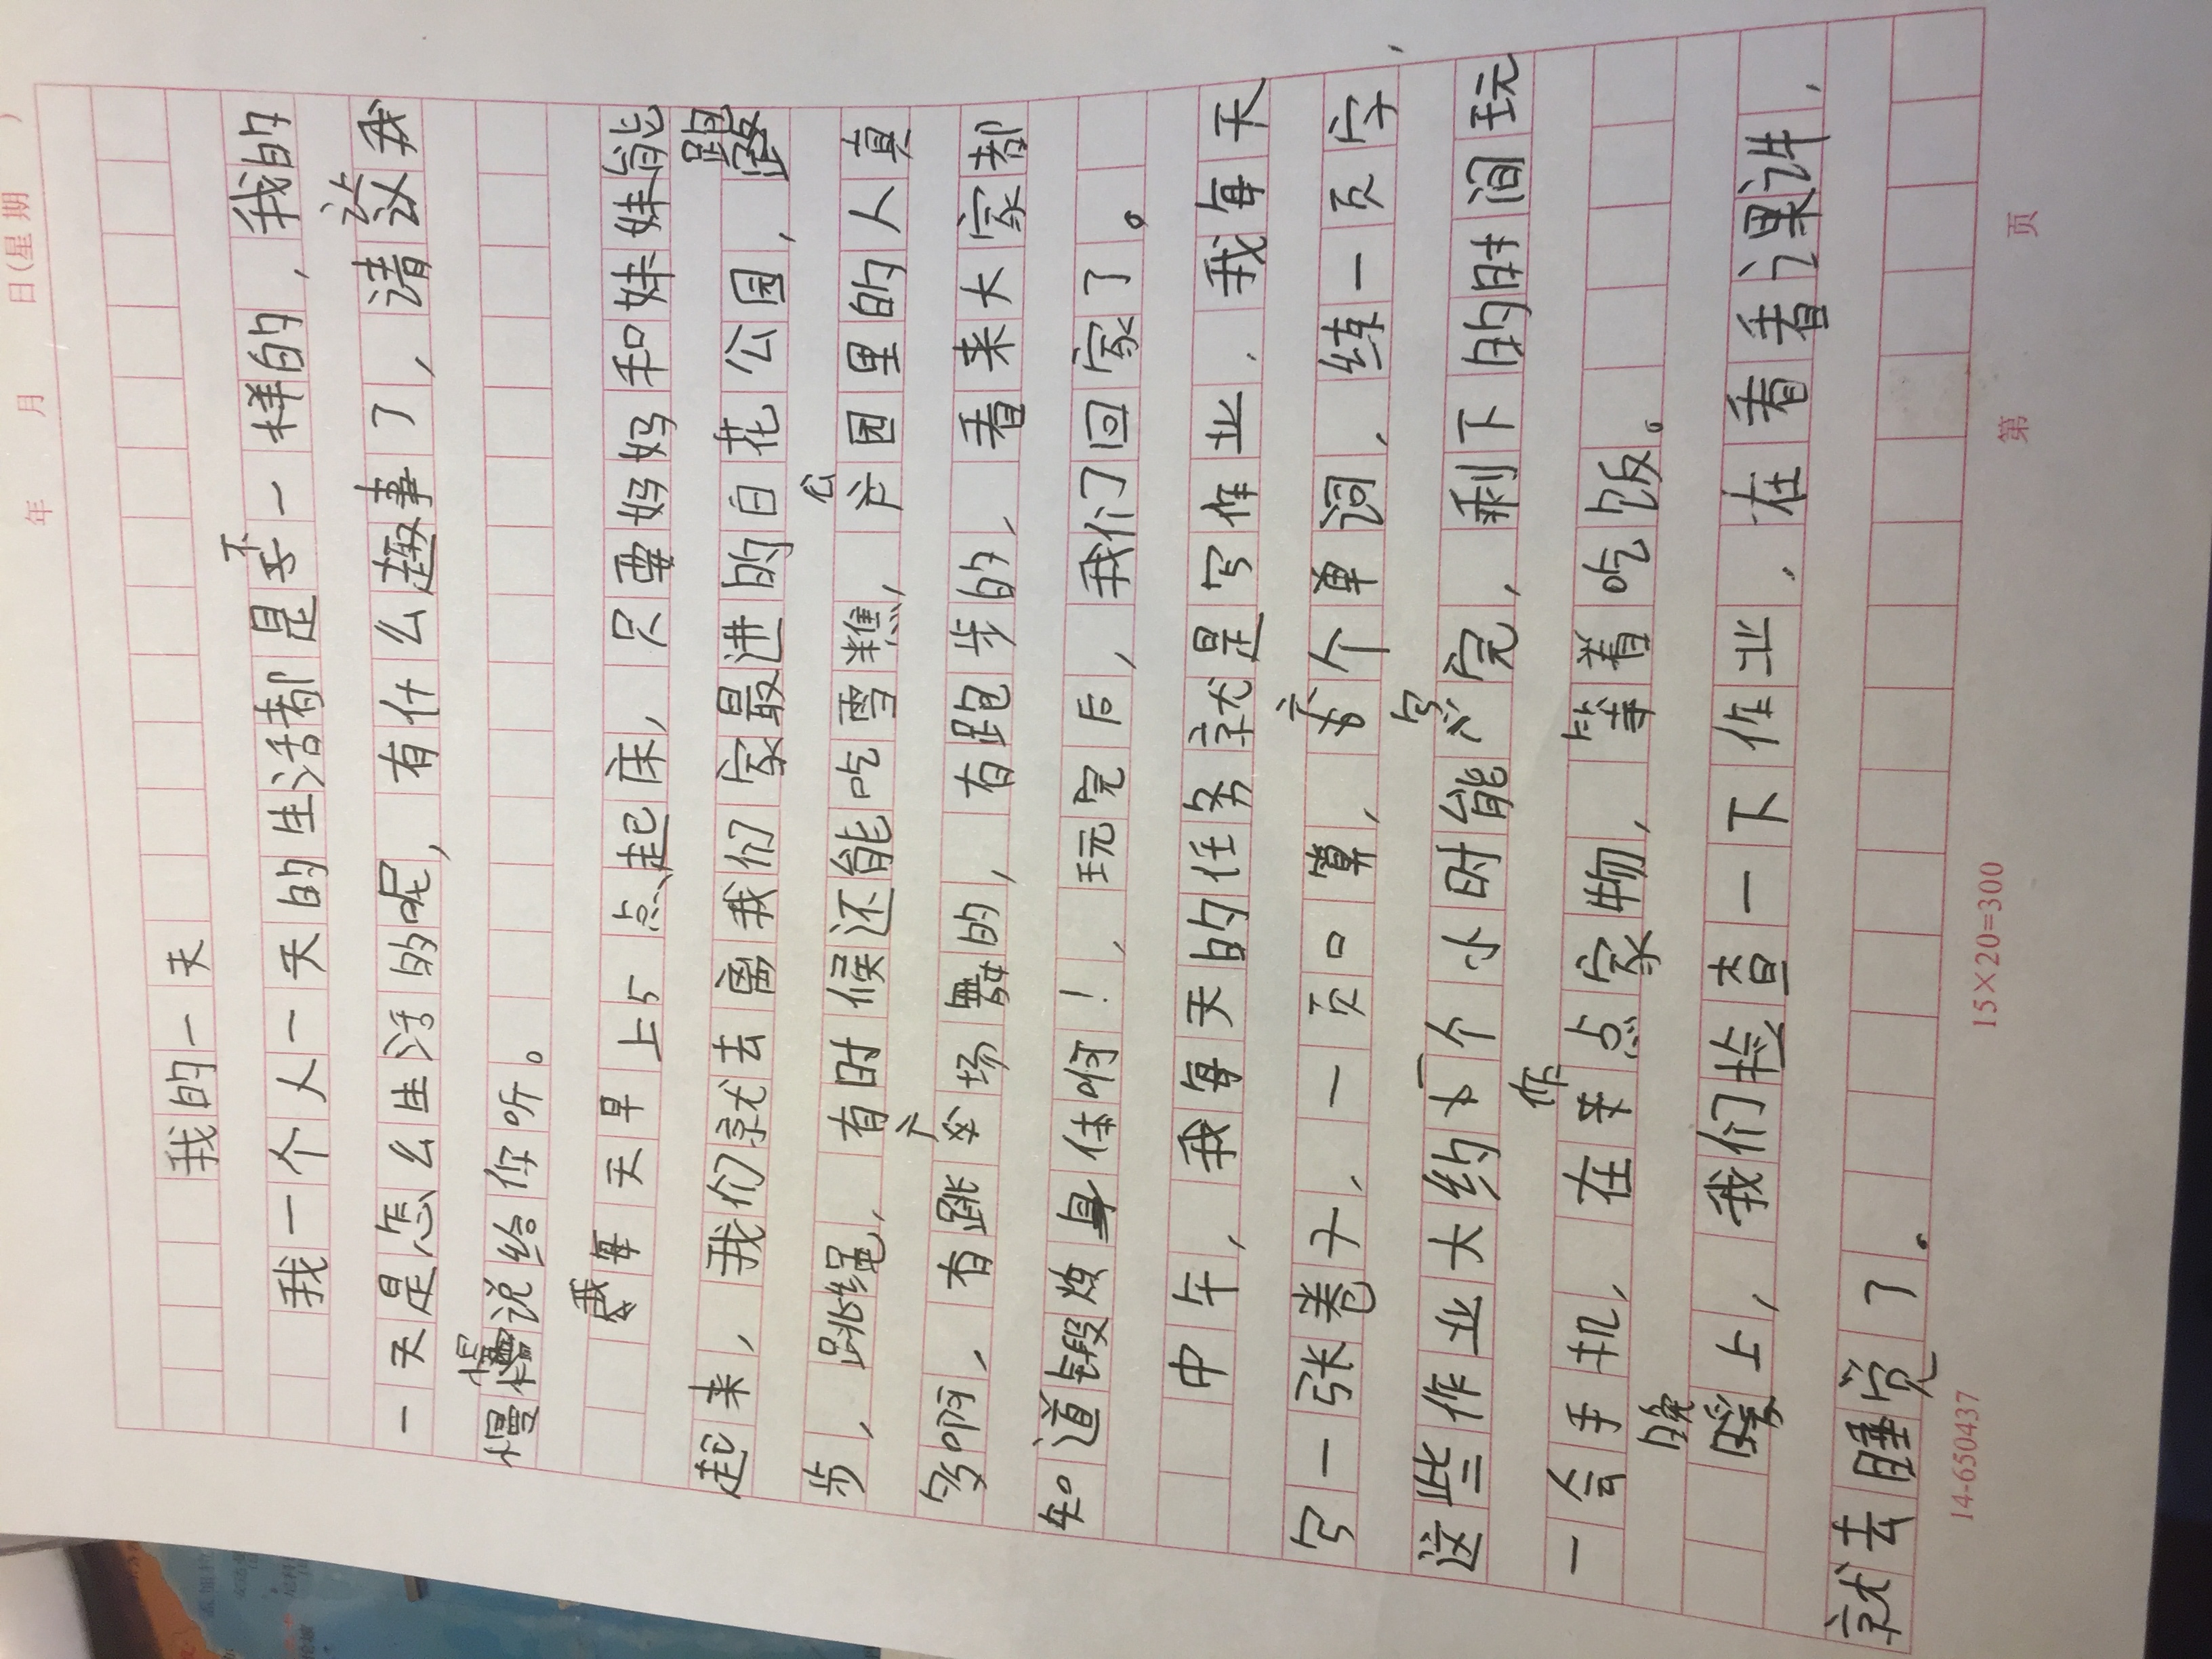 年 月 日(星期 )
我的一天
我一个人一天的生活都是不一样的，我的
一天是怎么生活的呢，有什么趣事了，请让我
慢慢说给你听。
我每天早上5点起床，只要妈妈和妹妹能
起来，我们就去离我们家最进的白花公园，跑
步，跳绳，有时候还能吃雪糕，公园里的人真
多啊，有跳广场舞的，有跑步的，看来大家都
知道锻炼身体啊！，玩完后，我们回家了。
中午，我每天的任务就是写作业，我每天
写一张卷子，一页口算，六个单词，练一页字，
这些作业大约一个小时能写完，剩下的时间玩
一会手机，在作点家物，等着吃饭。
晚上，我们捡查一下作业，在看看课讲，
就去睡觉了。
14-650437 15×20=300 第 页